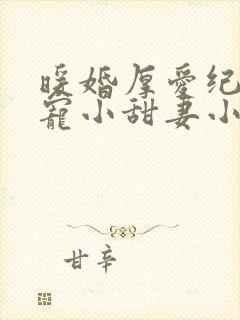 暖婚厚爱纪
寵小甜妻小
甘辛